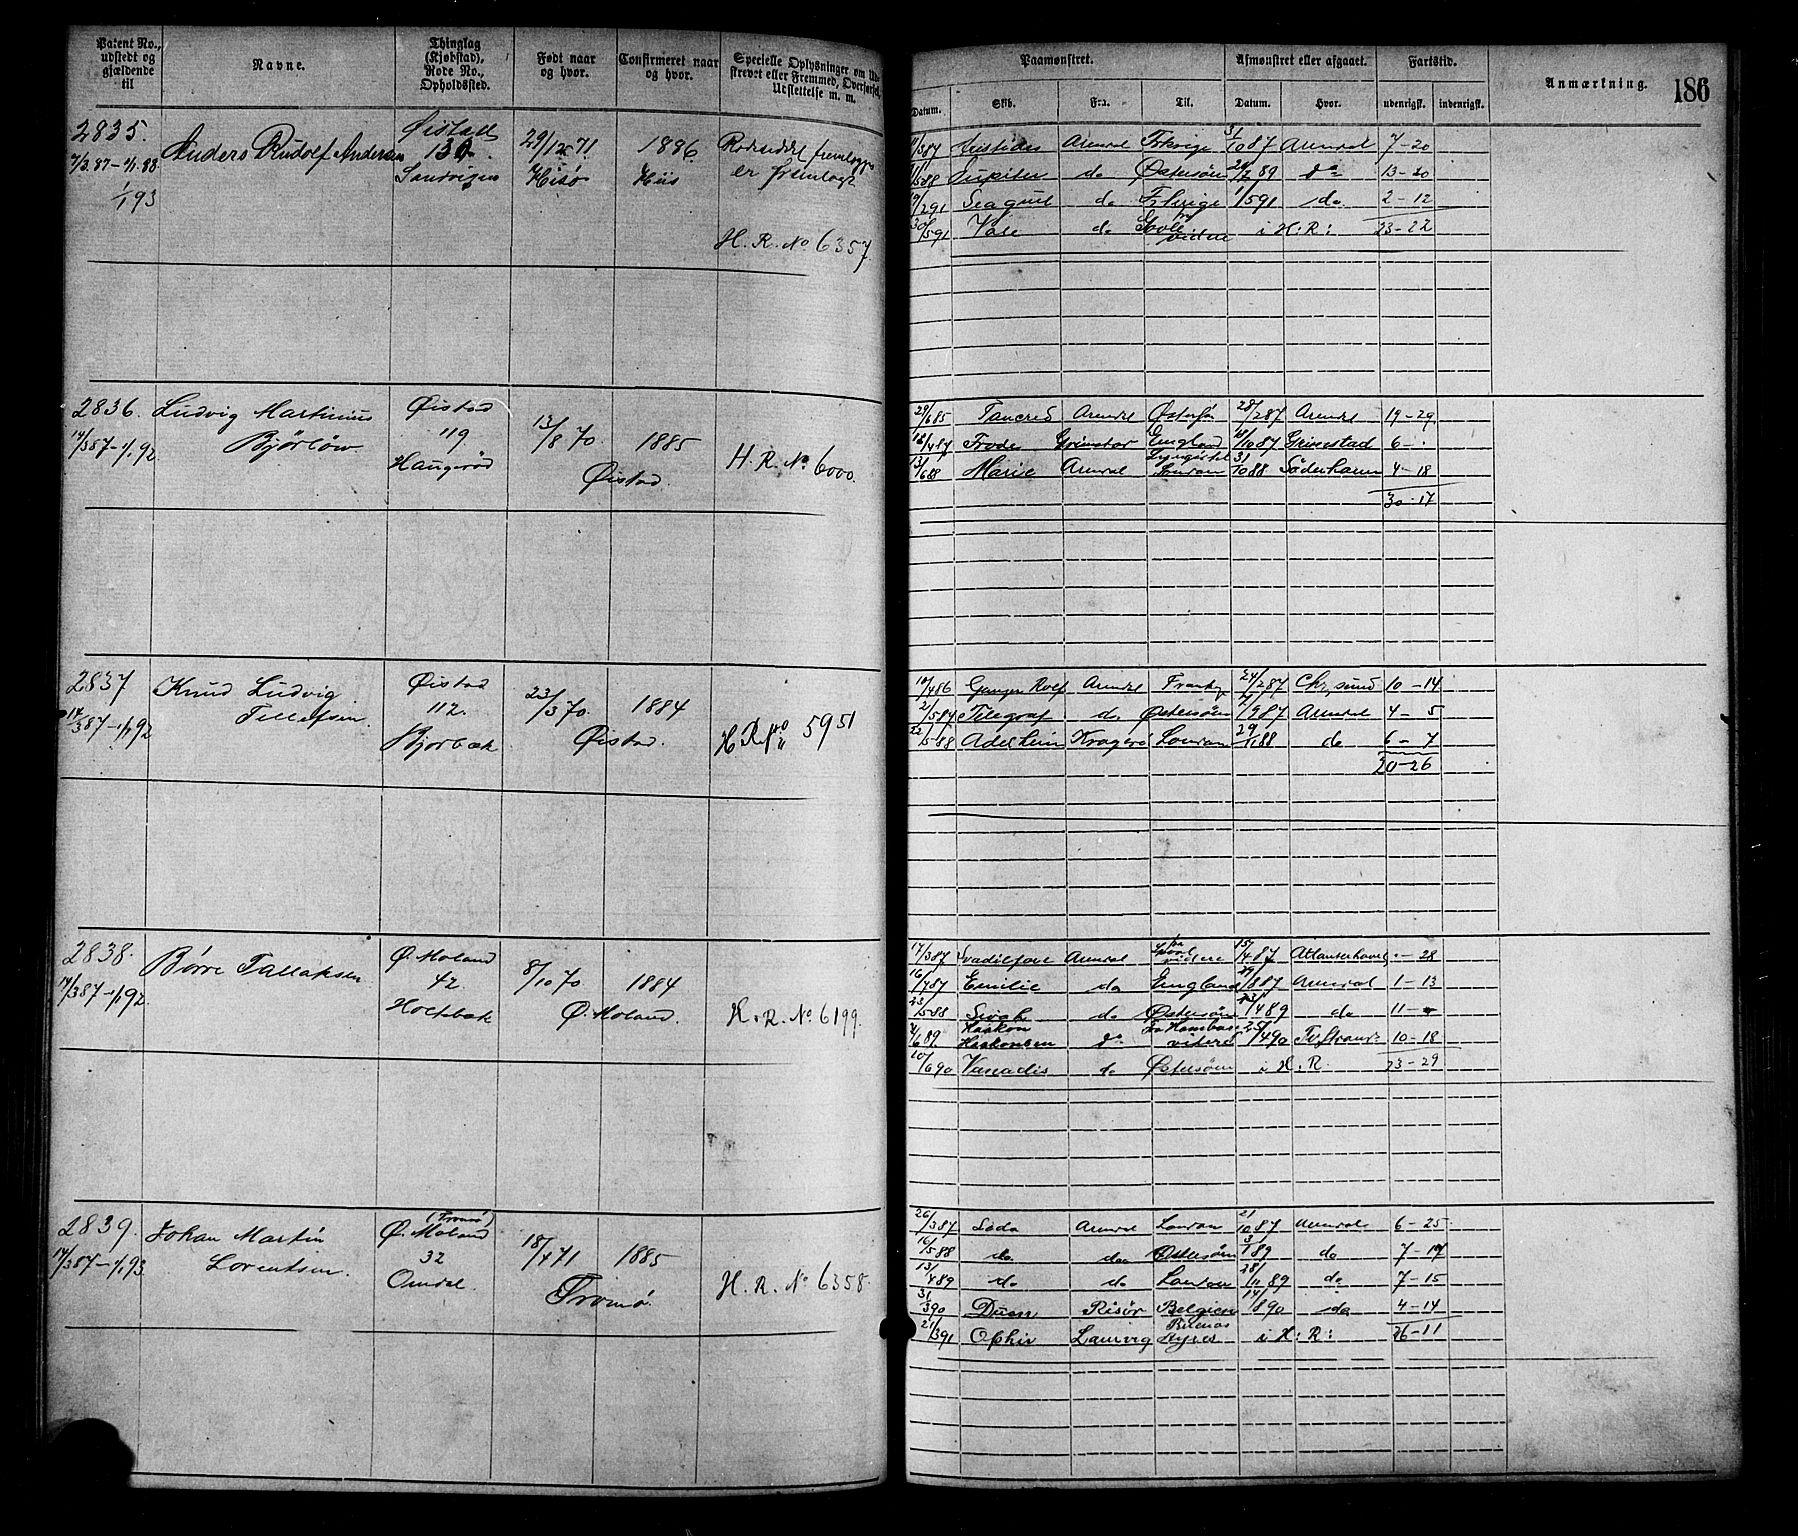 Patent No., udstedt og gjældende til
Navne.
Thinglag (Kjøbstad), Rode No., Opholdssted.
Født naar og hvor.
Confirmeret naar og hvor.
Specielle Oplysninger om Udskrevet eller Fremmed, Overførsel, Udslettelse m. m.
Paamønstret.
Afmønstret eller afgaaet.
Fartstid.
Anmærkning.
186
Datum. Skib. Fra. Til. Datum. Hvor. udenrigsk. indenrigsk.
2835.
7/3.87-1/1.88
1/1 93
Anders Rudolf Andersen
Øistad
130
Sandvigen
29/12 71
Hisø
1886
Hiis
er fremlagt
H. R. No 6357
/3 87 Aristides Arendal 31/10 87 Arendal 7-20
/5 88 Jupiter do Østersøen 89 do 13-20
/2 91 Seagull do 1/5 91 do 2-12
30/5 91 do Gefle videre i H: R: 23-22
2836.
14/3 87-1/1 92
Ludvig Martinius
Bjørløw
Øistad
119
Haugerød
13/8 70
1885
Øistad.
H. R. No 6000.
29/6 85 Tancred Arendal 28/2 87 Arendal 19-29
16/4 87 Frode Grimstad England 18/10 87 Grimestad 6-.
13/6 88 Marie Arendal 31/10 88 Söderhamn 4-18
30-17
2837
14/3 87-1/1 92
Knud Ludvig
Tellefsen.
Øistad
112.
Bjorbæk
23/3 70.
1884
Øistad.
H. R. No 5951
10/4 86 Ganger Rolf Arendal 24/2 87 Chr,sund 10-14
2/5 87 Telegraf do Østersøen 7/9 87 Arendal 4-5
22/5 88 Adelheim Kragerø 29/11 88 do 6-7
20-26
2838.
14/3 87-1/1 92
Børre Tallaksen
Ø. Moland
42.
Holtebæk
8/10 70
1884
Ø. Moland.
H. R. No 6199.
17/3 87 Svadilfare Arendal videre 15/4 87 Atlanterhavet .-28
16/7 87 Emilie do England /8 87 Arendal 1-13
23/5 88 do Østersøen 23/4 89 do 11-
4/6 89 Haakon Haakonsen do videre 25/4 90 10-18
10/6 90 Vanadis do Østersøen i H. R. 23-29
2839.
14/3 87-1/1 93
Johan Martin
Lorentsen.
(Tromø)
Ø. Moland
32
Omdal.
18/4 71
1885
Tromø.
H. R. No 6358.
26/3 87 Arendal 21/10 87 Arendal 6-25
16/5 88 do do Østersøen 3/1 89 do 7-17
13/4 89 do do 28/11 89 do 7-15
31/3 90 Risør Belgien 14/8 90 do 4-14
21/3 91 Ophir Laurvig Buenos Ayres i H: R: 26-11